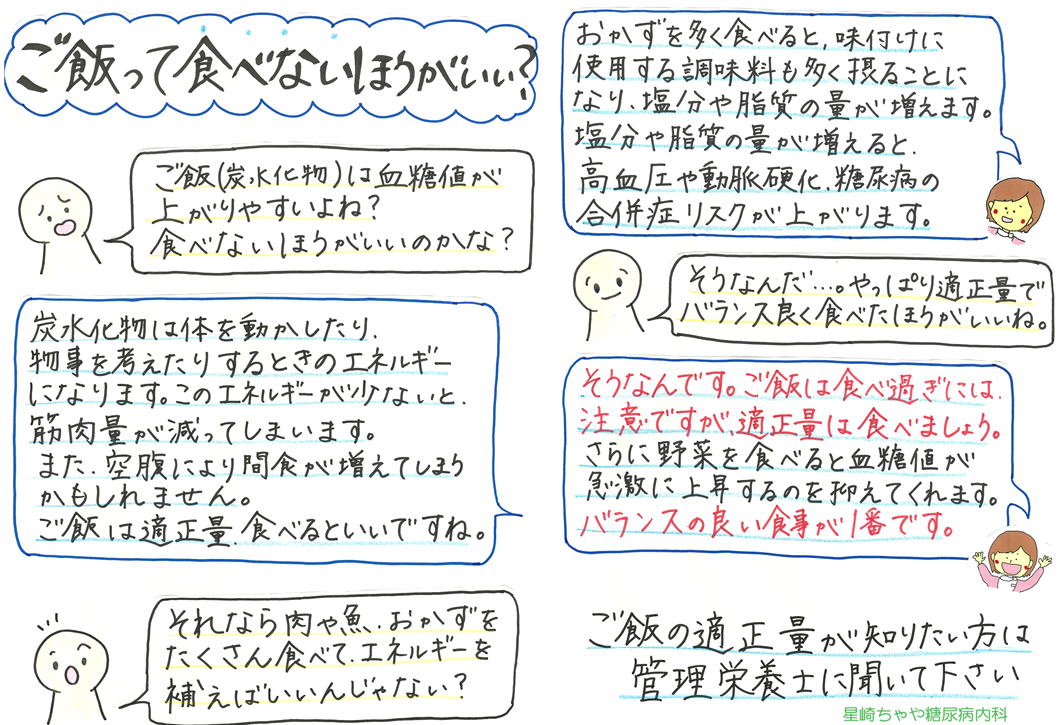 ご飯って食べないほうがいい?
ご飯(炭水化物)は血糖値が
上がりやすいよね?
食べないほうがいいのかな?
炭水化物は体を動かしたり、
物事を考えたりするときのエネルギー
になります。このエネルギーが少ないと、
筋肉量が減ってしまいます。
また、空腹により間食が増えてしまう
かもしれません。
ご飯は適正量、食べるといいですね。
それなら肉や魚、おかずを
たくさん食べて、エネルギーを
補えばいいんじゃない?
おかずを多く食べると、味付けに
使用する調味料も多く摂ることに
なり、塩分や脂質の量が増えます。
塩分や脂質の量が増えると、
高血圧や動脈硬化、糖尿病の
合併症リスクが上がります。
そうなんだ…。やっぱり適正量で
バランス良く食べたほうがいいね。
そうなんです。ご飯は食べ過ぎには、
注意ですが、適正量は食べましょう。
さらに野菜を食べると血糖値が
急激に上昇するのを抑えてくれます。
バランスの良い食事が1番です。
ご飯の適正量が知りたい方は
管理栄養士に聞いて下さい
星崎ちゃや糖尿病内科